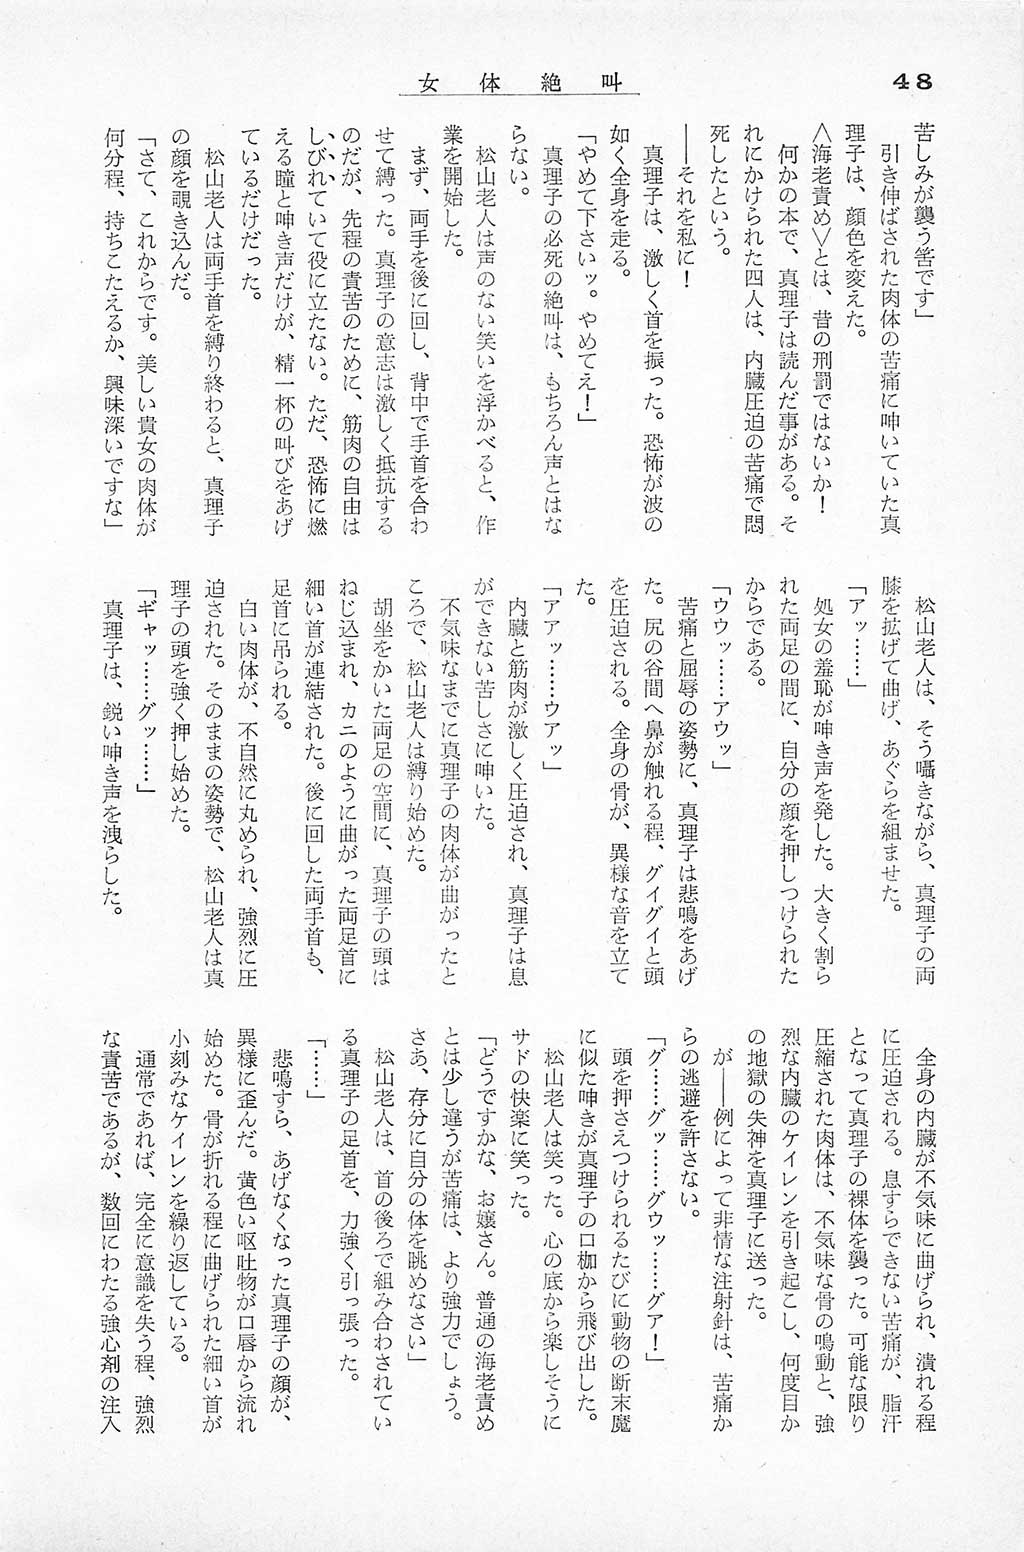 48
女体絶叫
苦しみが襲う筈です」
引き伸ばされた肉体の苦痛に呻いていた真
理子は、顔色を変えた。
＜海老責め＞とは、昔の刑罰ではないか！
何かの本で、真理子は読んだ事がある。そ
れにかけられた四人は、内臓圧迫の苦痛で悶
死したという。
――それを私に！
真理子は、激しく首を振った。恐怖が波の
如く全身を走る。
「やめて下さいッ。やめてえ！」
真理子の必死の絶叫は、もちろん声とはな
らない。
松山老人は声のない笑いを浮かべると、作
業を開始した。
まず、両手を後に回し、背中で手首を合わ
せて縛った。真理子の意志は激しく抵抗する
のだが、先程の責苦のために、筋肉の自由は
しびれていて役に立たない。ただ、恐怖に燃
える瞳と呻き声だけが、精一杯の叫びをあげ
ているだけだった。
松山老人は両手首を縛り終わると、真理子
の顔を覗き込んだ。
「さて、これからです。美しい貴女の肉体が
何分程、持ちこたえるか、興味深いですな」
松山老人は、そう囁きながら、真理子の両
膝を拡げて曲げ、あぐらを組ませた。
「アッ……」
処女の羞恥が呻き声を発した。大きく割ら
れた両足の間に、自分の顔を押しつけられた
からである。
「ウウッ……アウッ」
苦痛と屈辱の姿勢に、真理子は悲鳴をあげ
た。尻の谷間へ鼻が触れる程、グイグイと頭
を圧迫される。全身の骨が、異様な音を立て
た。
「アアッ……ウアッ」
内臓と筋肉が激しく圧迫され、真理子は息
ができない苦しさに呻いた。
不気味なまでに真理子の肉体が曲がったと
ころで、松山老人は縛り始めた。
胡坐をかいた両足の空間に、真理子の頭は
ねじ込まれ、カニのように曲がった両足首に
細い首が連結された。後に回した両手首も、
足首に吊られる。
白い肉体が、不自然に丸められ、強烈に圧
迫された。そのままの姿勢で、松山老人は真
理子の頭を強く押し始めた。
「ギャッ……グッ……」
真理子は、鋭い呻き声を洩らした。
全身の内臓が不気味に曲げられ、潰れる程
に圧迫される。息すらできない苦痛が、脂汗
となって真理子の裸体を襲った。可能な限り
圧縮された肉体は、不気味な骨の鳴動と、強
烈な内臓のケイレンを引き起こし、何度目か
の地獄の失神を真理子に送った。
が――例によって非情な注射針は、苦痛か
らの逃避を許さない。
「グ……グッ……グウッ……グア！」
頭を押さえつけられるたびに動物の断末魔
に似た呻きが真理子の口枷から飛び出した。
松山老人は笑った。心の底から楽しそうに
サドの快楽に笑った。
「どうですかな、お嬢さん。普通の海老責め
とは少し違うが苦痛は、より強力でしょう。
さあ、存分に自分の体を眺めなさい」
松山老人は、首の後ろで組み合わされてい
る真理子の足首を、力強く引っ張った。
「……」
悲鳴すら、あげなくなった真理子の顔が、
異様に歪んだ。黄色い呕吐物が口唇から流れ
始めた。骨が折れる程に曲げられた細い首が
小刻みなケイレンを繰り返している。
通常であれば、完全に意識を失う程、強烈
な責苦であるが、数回にわたる強心剤の注入